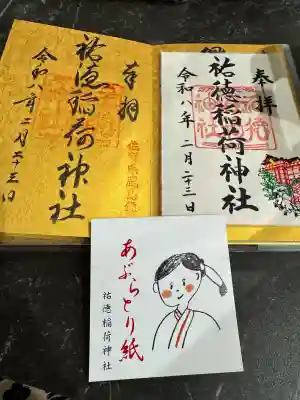 奉拝
祐徳稲荷神社
令和八年二月二十三日
奉拝
祐徳稲荷神社
令和八年二月二十三日
あぶらとり紙
祐徳稲荷神社